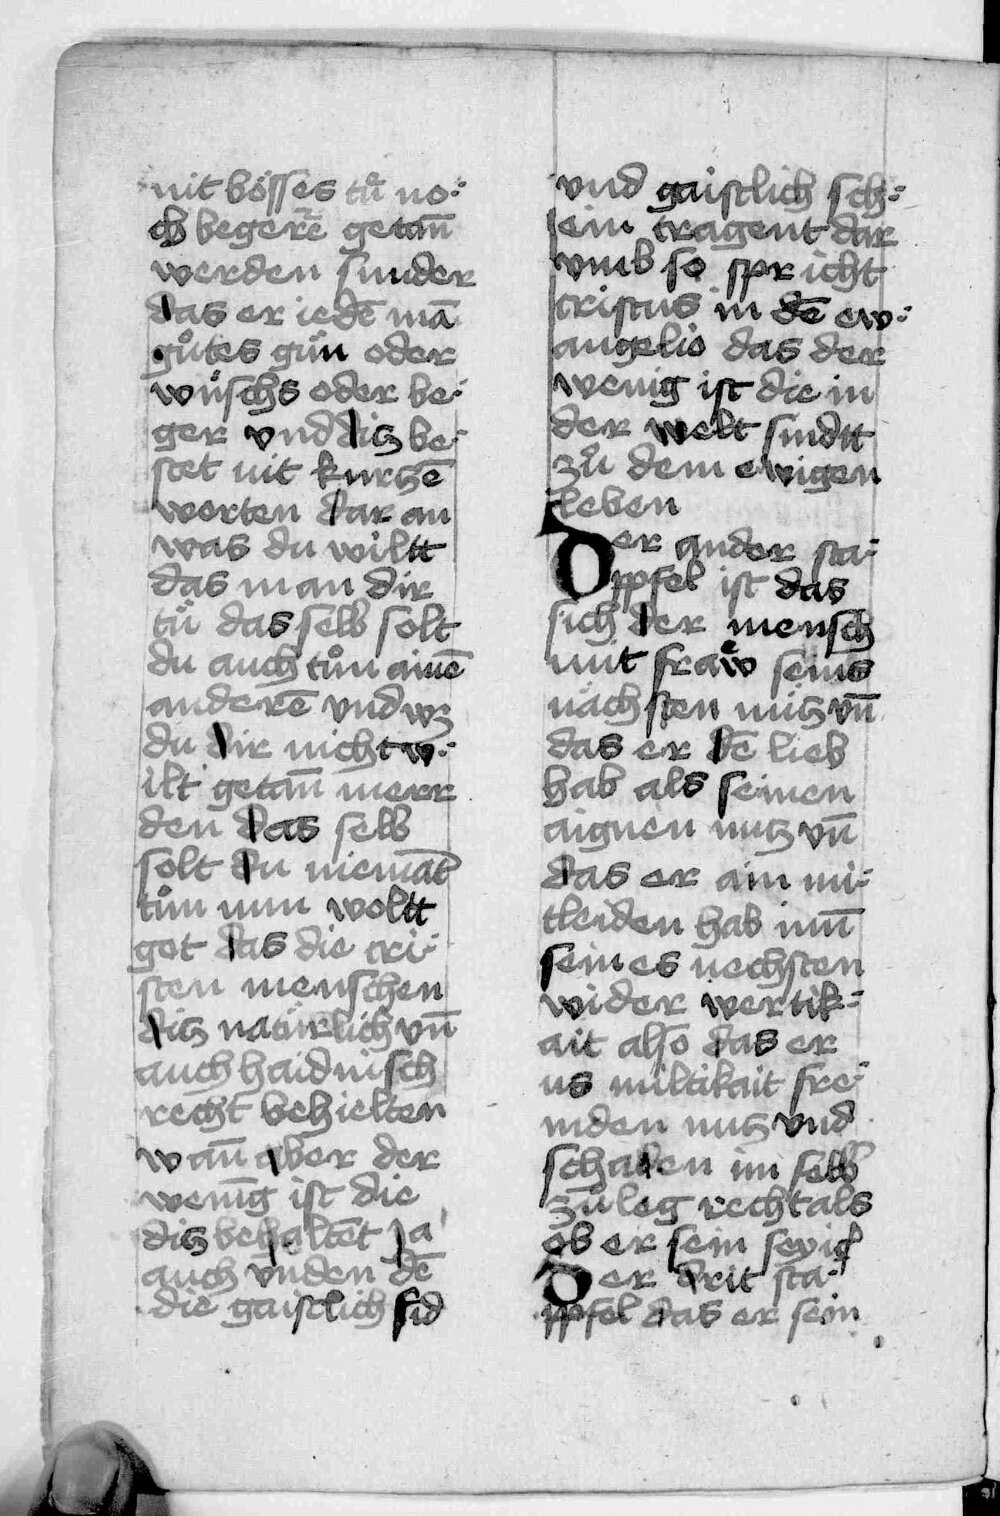 nit bösses tuͦ no:
ch begerē getan̄
werden sunder
das er iedē mā
guͦtes guͦn oder
wüschs oder be:
ger vnd ditz be:
stet nit kurtzē
worten dar an
was du wiltt
das man dir
tuͦ das selb solt
du auch tuͦn ainē
anderē vnd wz
du dir nicht w:
ilt getan̄ werr
den das selb
solt du niemāt
tuͦn nun woltt
got das die cri:
sten menschen
ditz natürlich vn̄
auch haidnisch
recht behielten
wan̄ aber der
wenīg ist die
ditz behaltēt ja
auch vnden dē
die gaistlich sid
vnd gaistlich sch:
ein tragent dar
vmb so spricht
cristus in dē ew:
angelio das der
wenig ist die in
der welt sindtt
zuͦ dem ewigen
leben
Der ander sta:
ppfel ist das
sich der mensch
mit fraͤw seins
nächsten nutz vn̄
das er dē lieb
hab als seinen
aignen nutz vn̄
das er ain mi:
tleiden hab inn̄
seines nechsten
wider wertik:
ait also das er
us miltikait fre:
mden nutz vnd
schaden im selb
zuͦ leg recht als
ob er sein seyig
Der drit sta:
ppfel das er sein